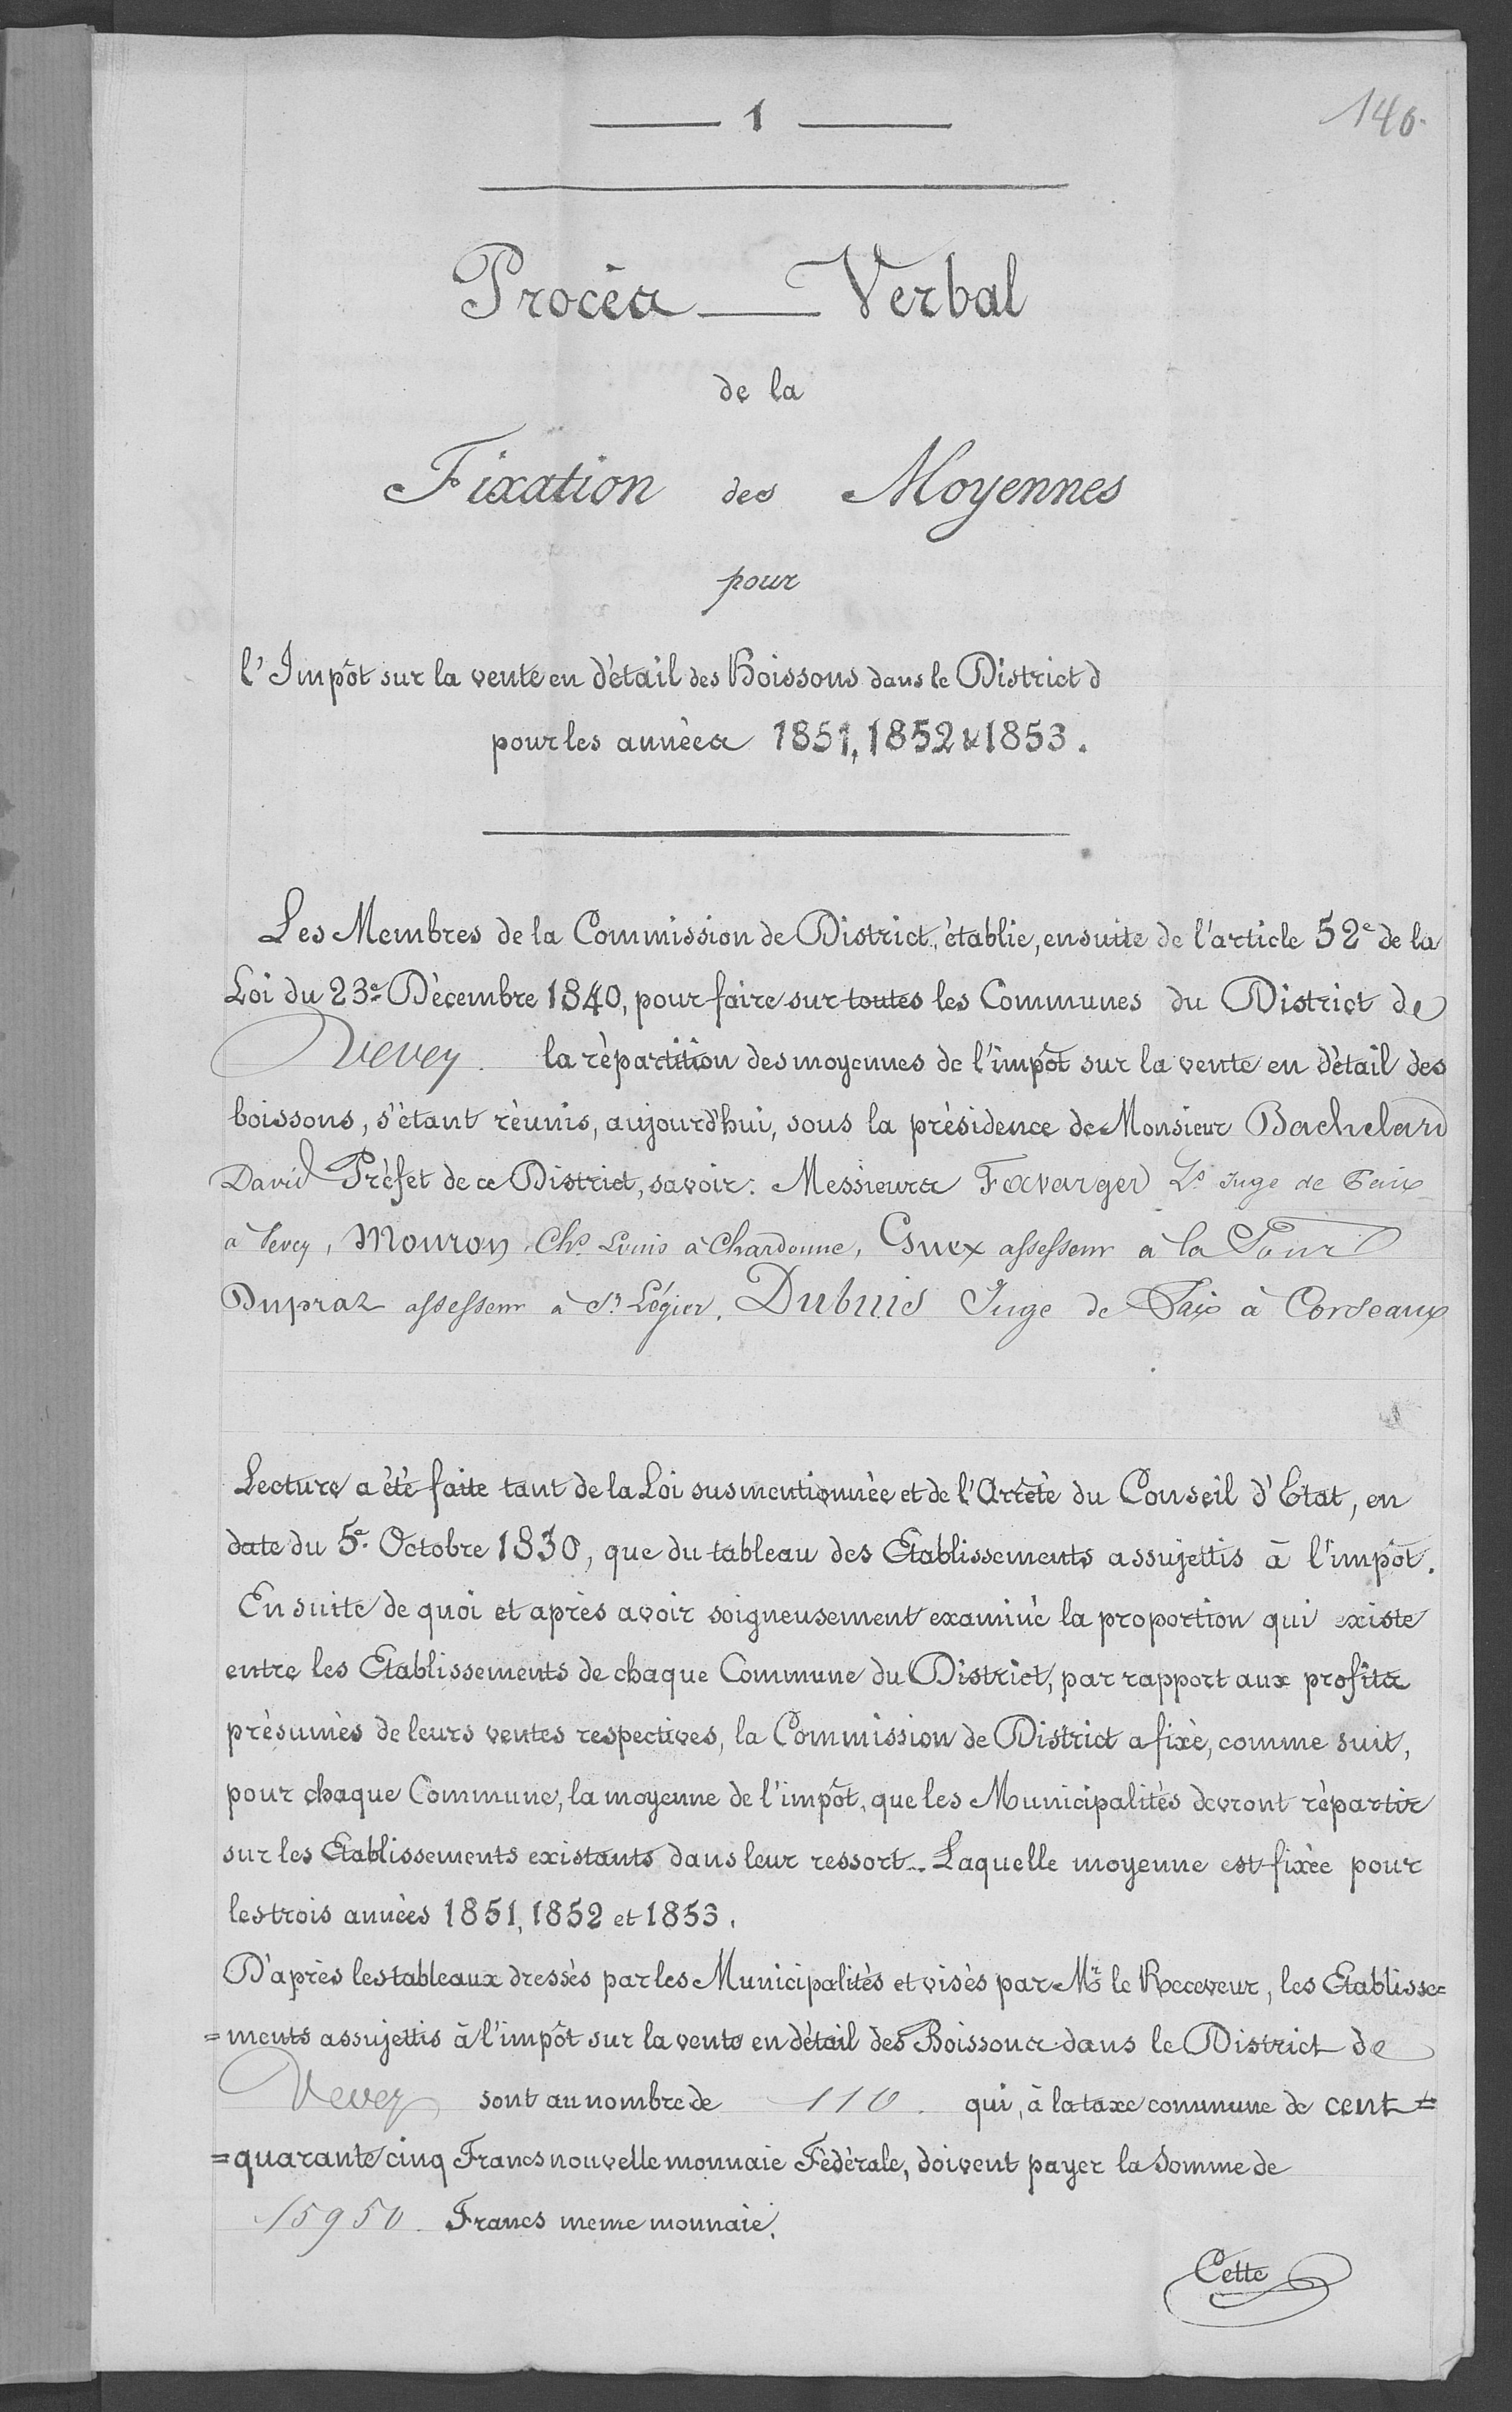 1
146.
Procès-Verbal
de la
Fixation des Moyennes
pour
l'Impôt sur la vente en détail des Boissons dans le District d
pour les années 1851, 1852 & 1853.
Les Membres de la Commission de District, établie, ensuite de l'article 52e de la
Loi du 23e Décembre 1840, pour faire sur toutes les Communes du District de
Vevey. la répartition des moyennes de l'impôt sur la vente en détail des
boissons, s'étant réunis, aujourd'hui, sous la présidence de Monsieur Bachelard
David Préfet de ce District, savoir: Messieurs Favarger Ls Juge de Paix
à Vevey, Mouron Chs Louis à Chardonne, Guex assesseur à la Tour
Dupraz assesseur à St Légier, Dubuis Juge de Paix à Corseaux
Lecture a été faite tant de la Loi susmentionnée et de l'Arrêté du Conseil d'Etat, en
date du 5e Octobre 1830, que du tableau des Etablissements assujettis à l'impôt.
En suite de quoi et après avoir soigneusement examiné la proportion qui existe
entre les Etablissements de chaque Commune du District, par rapport aux profits
présumés de leurs ventes respectives, la Commission de District a fixé, comme suit,
pour chaque Commune, la moyenne de l'impôt, que les Municipalités devront répartir
sur les Etablissements existants dans leur ressort. Laquelle moyenne est fixée pour
les trois années 1851, 1852 et 1853.
D'après les tableaux dressés par les Municipalités et visés par Mr le Receveur, les Etablisse=
=ments assujettis à l'impôt sur la vente en détail des Boissons dans le District de
Vevey sont au nombre de 110. qui, à la taxe commune de cent=
=quarante cinq Francs nouvelle monnaie Fédérale, doivent payer la Somme de
15950 Francs meme monnaie.
Cette